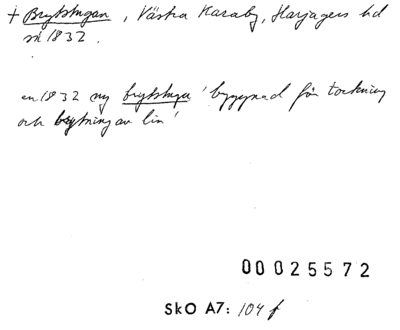 † Brytstugan, Västra Karaby, Harjagers hd
sk 1832.
en 1832 ny brytstuga 'byggnad för torkning
och brytning av lin'
00025572
SkO A7: 104 f